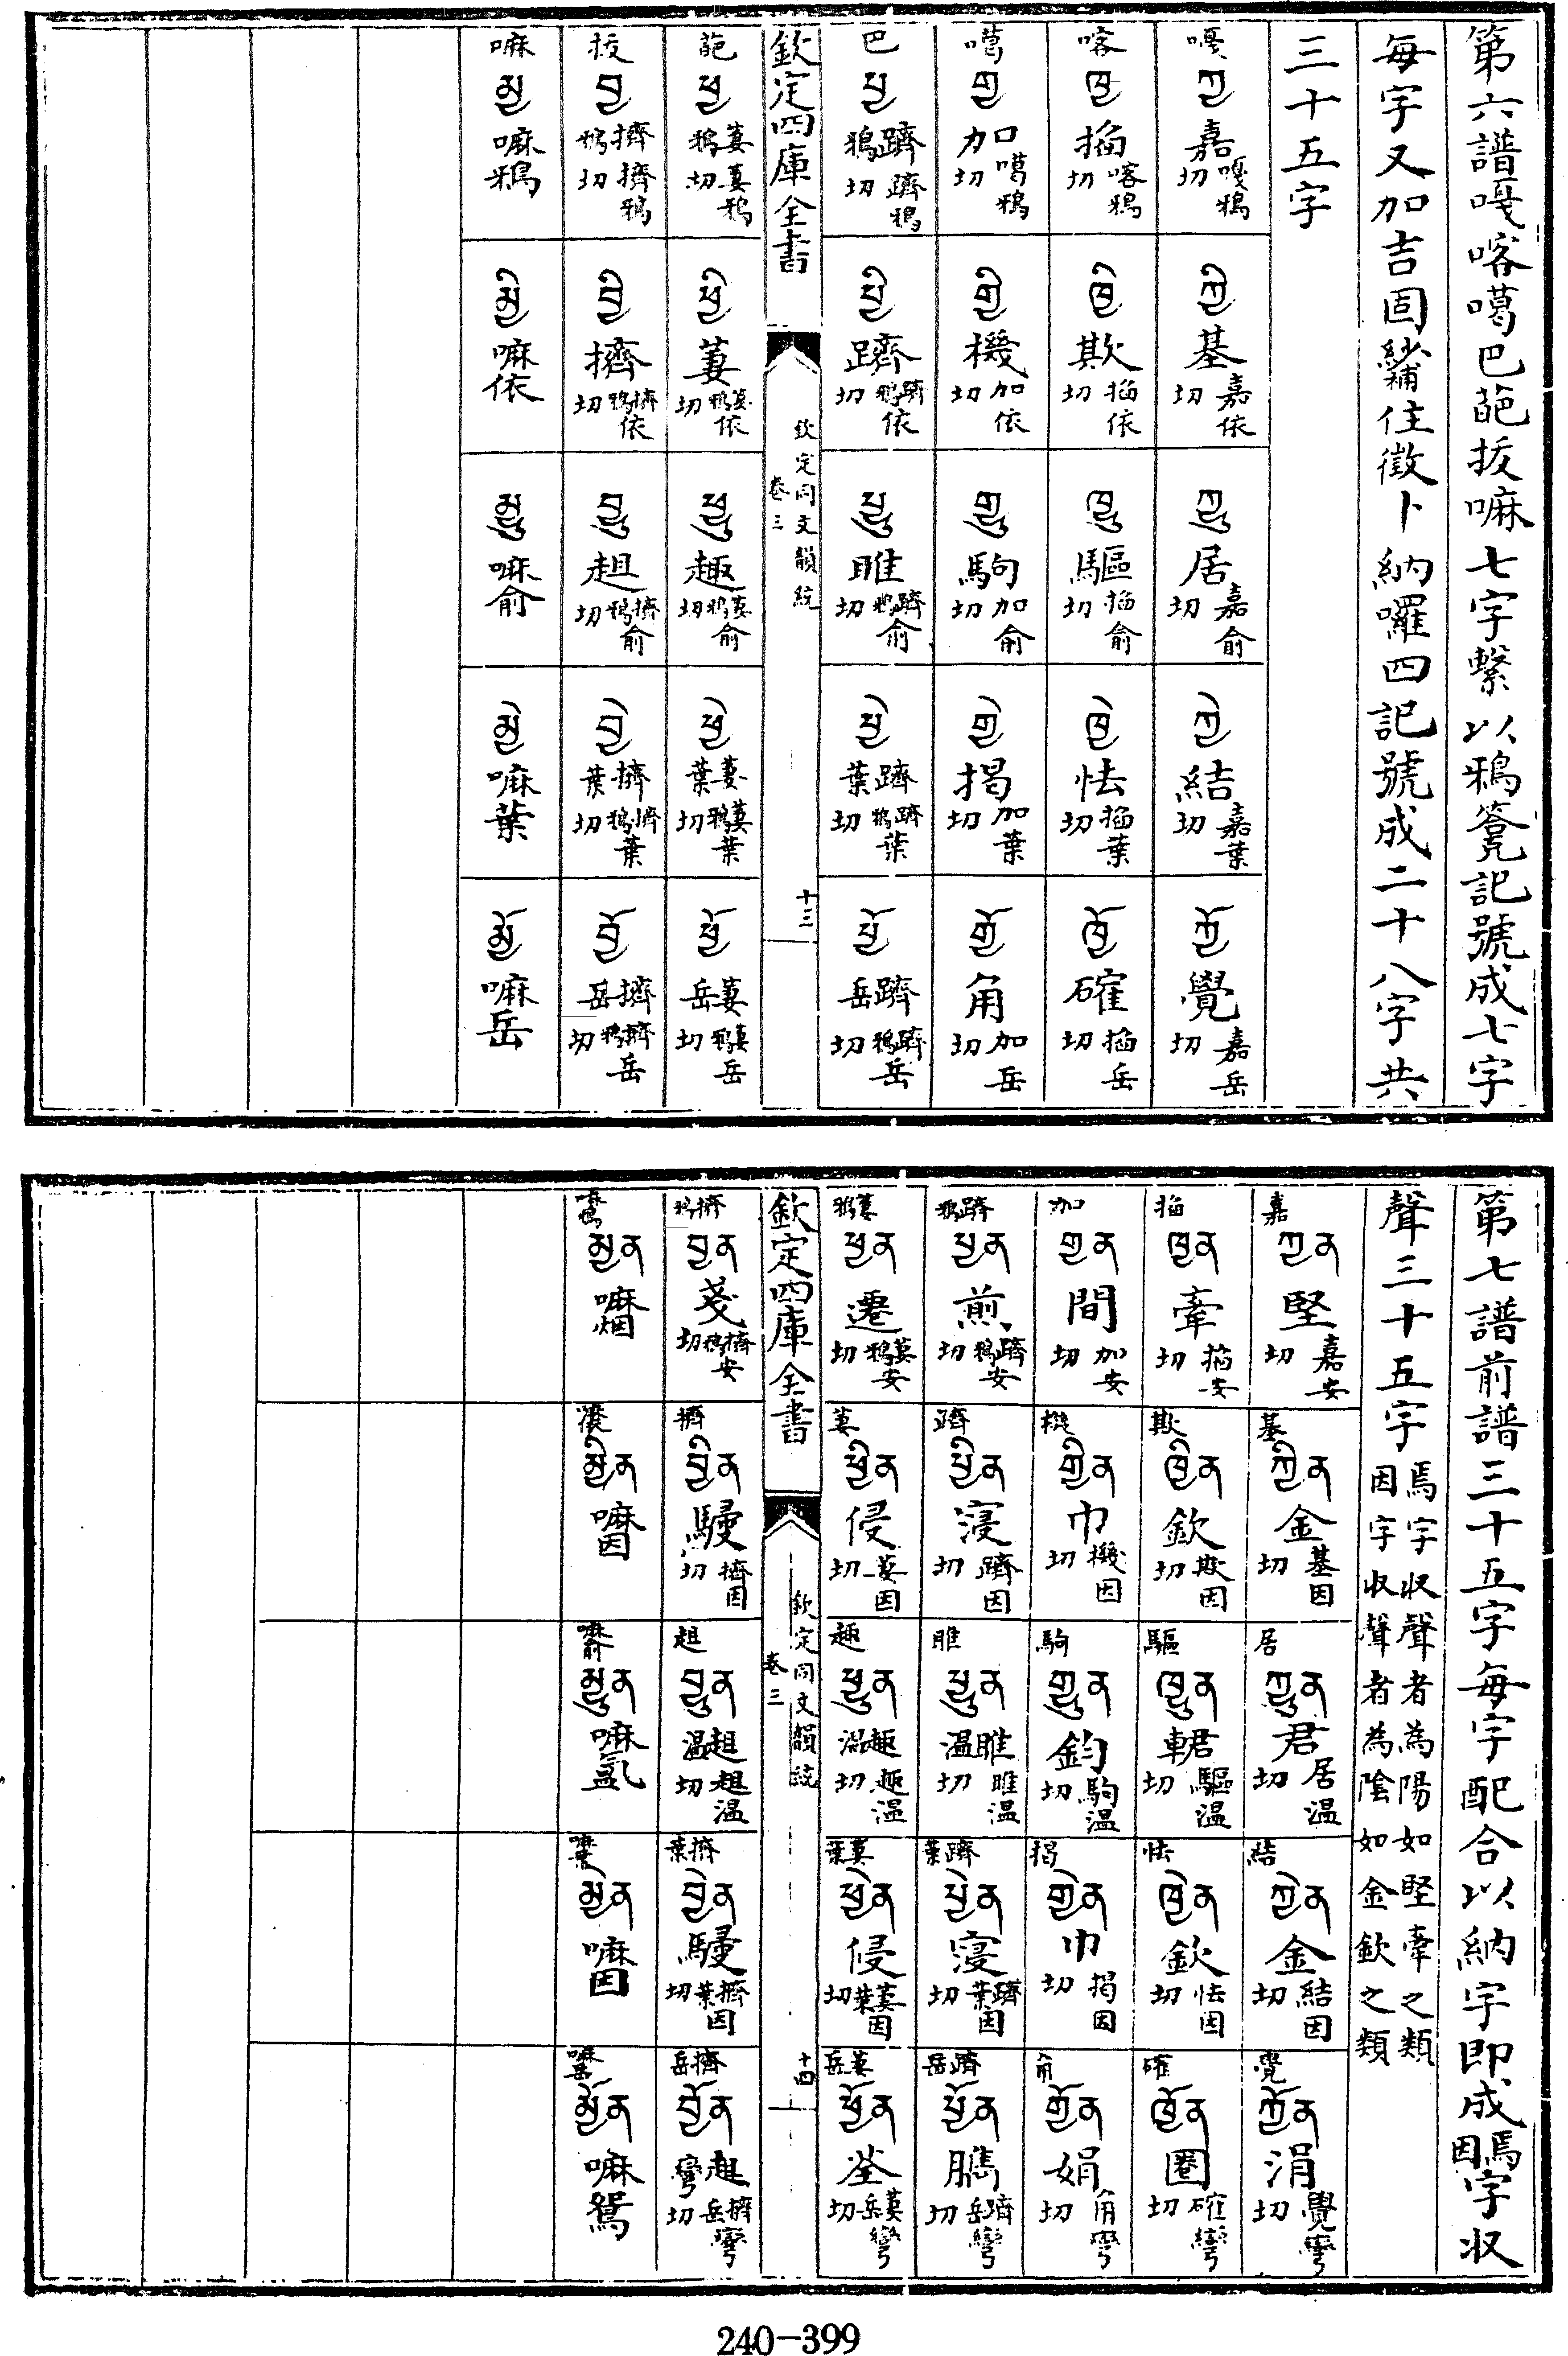 第六譜嘎喀噶巴葩拔嘛七字繫以鴉記號成七字
每字又加吉固住徵卜納囉四記號成二十八字共
三十五字
嘎 ཀྱ 嘉 嘎鴉切 ཀྱི 基 嘉依切 ཀྱུ 居 嘉俞切 ཀྱེ 結 嘉葉切 ཀྱོ 覺 嘉岳切
喀 ཁྱ 掐 喀鴉切 ཁྱི 欺 掐依切 ཁྱུ 驅 掐俞切 ཁྱེ 怯 掐葉切 ཁྱོ 確 掐岳切
噶 གྱ 加 噶鴉切 གྱི 機 加依切 གྱུ 駒 加俞切 གྱེ 揭 加葉切 གྱོ 角 加岳切
巴 པྱ 躋鴉 躋鴉切 པྱི 躋 躋鴉依切 པྱུ 雎 躋鴉俞切 པྱེ 躋葉 躋鴉葉切 པྱོ 躋岳 躋鴉岳切
欽定四庫全書 欽定同文韻統 卷三 十三
葩 ཕྱ 萋鴉 萋鴉切 ཕྱི 萋 萋鴉依切 ཕྱུ 趣 萋鴉俞切 ཕྱེ 萋葉 萋鴉葉切 ཕྱོ 萋岳 萋鴉岳切
拔 བྱ 擠鴉 擠鴉切 བྱི 擠 擠鴉依切 བྱུ 趄 擠鴉俞切 བྱེ 擠葉 擠鴉葉切 བྱོ 擠岳 擠鴉岳切
嘛 མྱ 嘛鴉 མྱི 嘛依 མྱུ 嘛俞 མྱེ 嘛葉 མྱོ 嘛岳
第七譜前譜三十五字每字配合以納字即成焉因字収
聲三十五字 焉字収聲者為陽如堅牽之類 因字収聲者為陰如金欽之類
嘉 ཀྱན 堅 嘉安切 基 ཀྱིན 金 基因切 居 ཀྱུན 君 居温切 結 ཀྱེན 金 結因切 覺 ཀྱོན 涓 覺彎切
掐 ཁྱན 牽 掐安切 欺 ཁྱིན 欽 欺因切 驅 ཁྱུན 輑 驅温切 怯 ཁྱེན 欽 怯因切 確 ཁྱོན 圈 確彎切
加 གྱན 間 加安切 機 གྱིན 巾 機因切 駒 གྱུན 鈞 駒温切 揭 གྱེན 巾 揭因切 角 གྱོན 娟 角彎切
躋鴉 པྱན 煎 躋鴉安切 躋 པྱིན 寖 躋因切 雎 པྱུན 雎温 雎温切 躋葉 པྱེན 寖 躋葉因切 躋岳 པྱོན 臇 躋岳彎切
萋鴉 ཕྱན 遷 萋鴉安切 萋 ཕྱིན 侵 萋因切 趣 ཕྱུན 趣温 趣温切 萋葉 ཕྱེན 侵 萋葉因切 萋岳 ཕྱོན 荃 萋岳彎切
欽定四庫全書 欽定同文韻統 卷三 十四
擠鴉 བྱན 戔 擠鴉安切 擠 བྱིན 駸 擠因切 趄 བྱུན 趄温 趄温切 擠葉 བྱེན 駸 擠葉因切 擠岳 བྱོན 趄彎 擠岳彎切
嘛鴉 མྱན 嘛烟 嘛依 མྱིན 嘛因 嘛俞 མྱུན 嘛氲 嘛葉 མྱེན 嘛因 嘛岳 མྱོན 嘛鴛
240-399